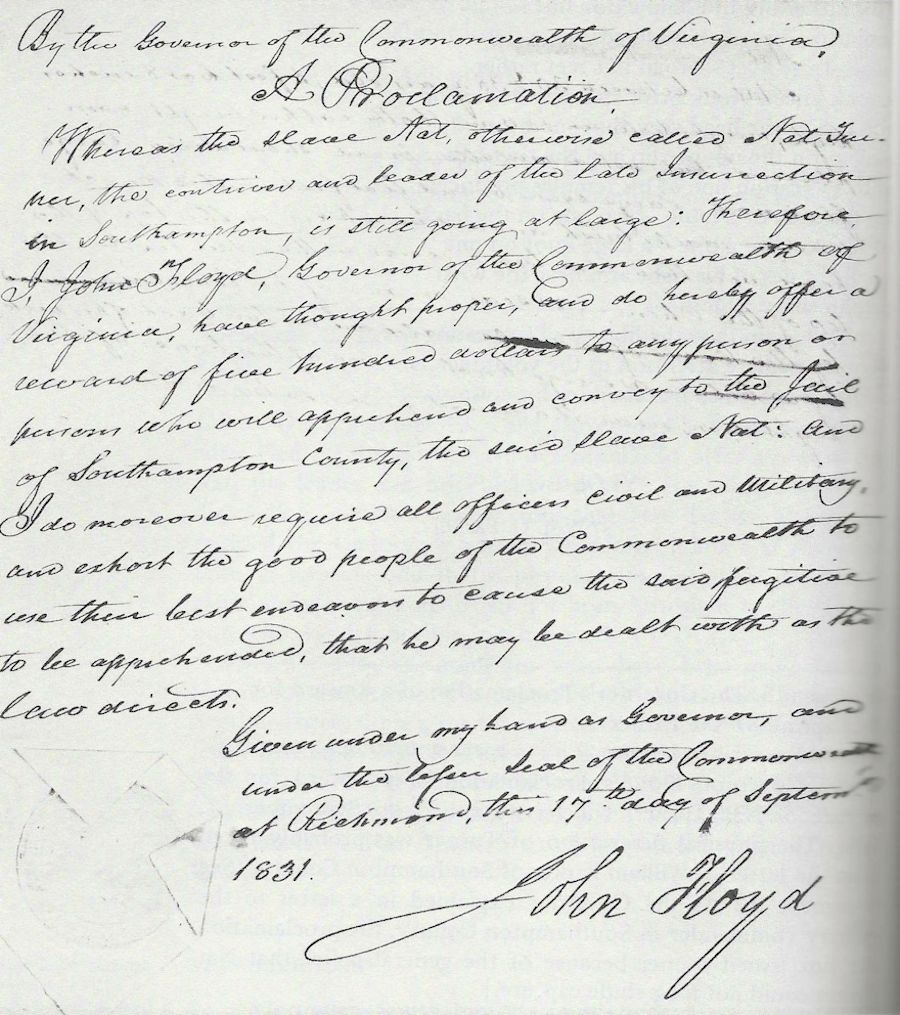 By the Governor of the Commonwealth of Virginia,
A Proclamation
Whereas the slave Nat, otherwise called Nat Tur-
ner, the contriver and leader of the late Insurrection
in Southampton, is still going at large: Therefore
I, John Floyd, Governor of the Commonwealth of
Virginia, have thought proper, and do hereby offer a
reward of five hundred dollars to any person or
persons who will apprehend and convey to the Jail
of Southampton County, the said slave Nat: and
I do moreover require all officers civil and military,
and exhort the good people of the Commonwealth to
use their best endeavors to cause the said fugitive
to be apprehended, that he may be dealt with as the
law directs.
Given under my hand as Governor, and
under the lesser seal of the Commonwealth
at Richmond, this 17th day of Septem
1831.
John Floyd